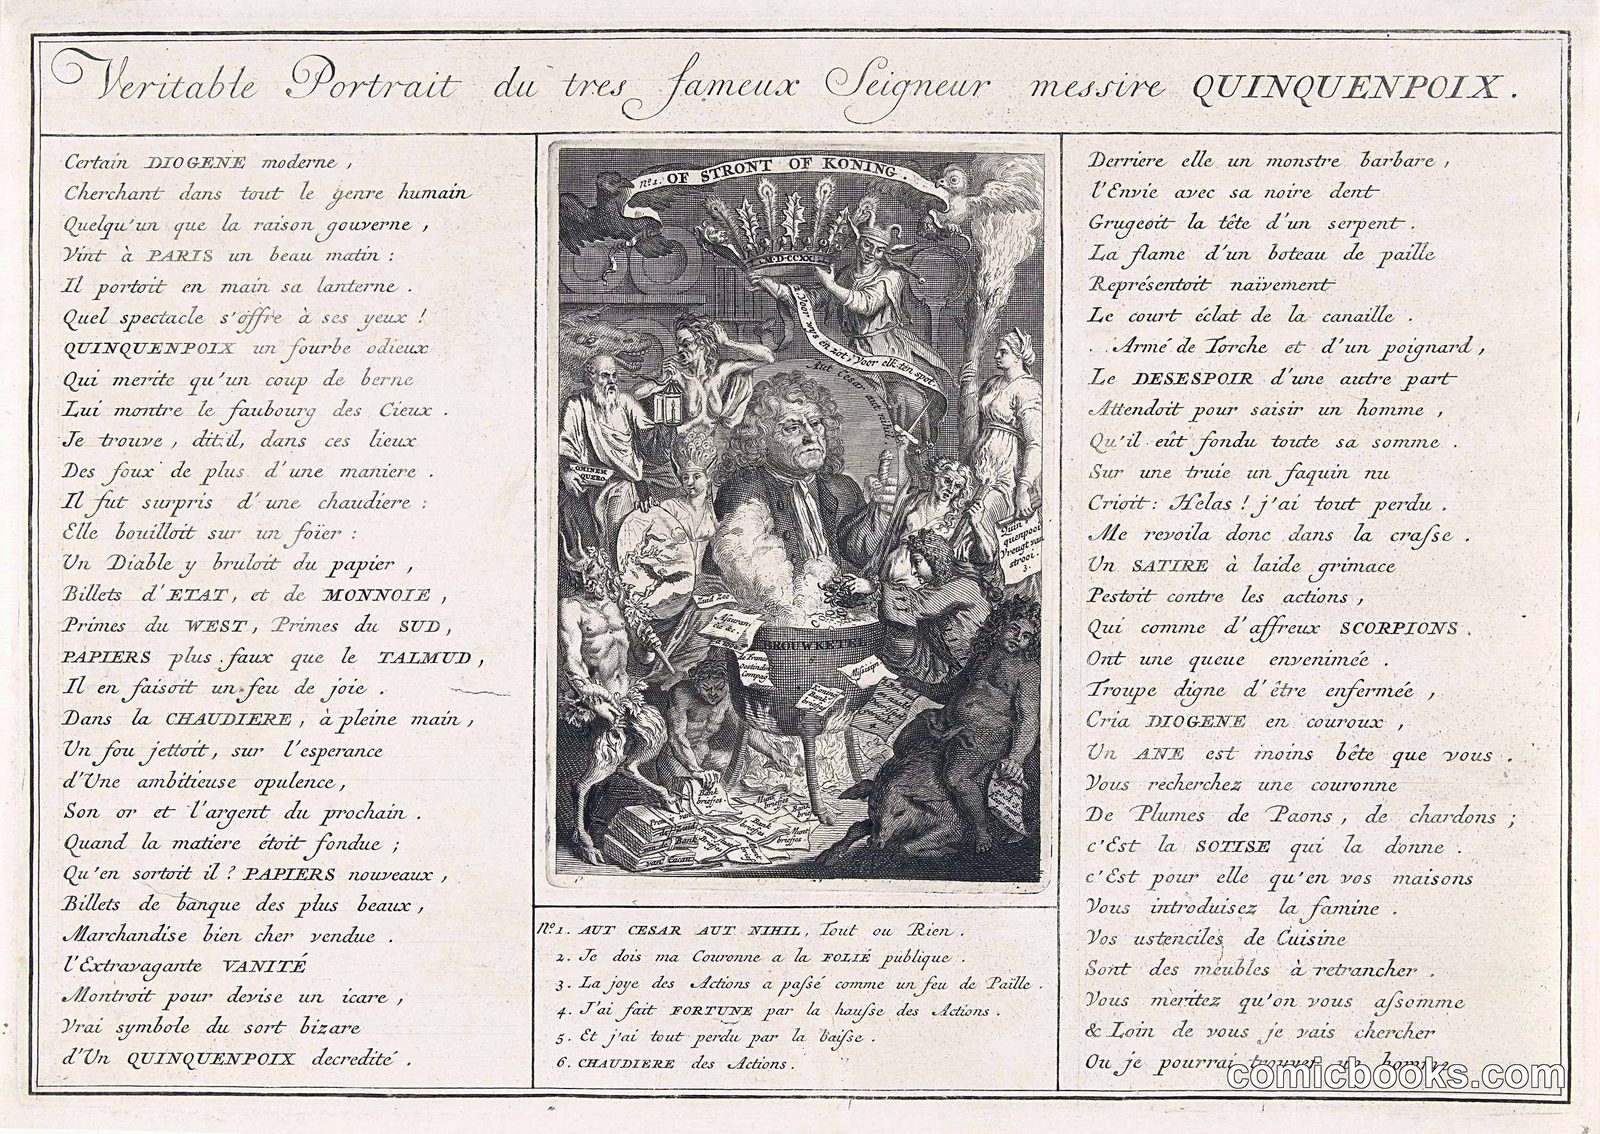 Veritable Portrait du tres fameux Seigneur messire QUINQUENPOIX.
Certain DIOGENE moderne,
Cherchant dans tout le genre humain
Quelqu'un que la raison gouverne,
Vint à PARIS un beau matin:
Il portoit en main sa lanterne.
Quel spectacle s'offre à ses yeux!
QUINQUENPOIX un fourbe odieux
Qui merite qu'un coup de berne
Lui montre le faubourg des Cieux.
Je trouve, dit.il, dans ces lieux
Des foux de plus d'une maniere.
Il fut surpris d'une chaudiere:
Elle bouilloit sur un foïer:
Un Diable y bruloit du papier,
Billets d'ETAT, et de MONNOIE,
Primes du WEST, Primes du SUD,
PAPIERS plus faux que le TALMUD,
Il en faisoit un feu de joie.
Dans la CHAUDIERE, à pleine main,
Un fou jettoit, sur l'esperance
d'Une ambitieuse opulence,
Son or et l'argent du prochain.
Quand la matiere étoit fondue;
Qu'en sortoit il? PAPIERS nouveaux,
Billets de banque des plus beaux,
Marchandise bien cher vendue.
l'Extravagante VANITÉ
Montroit pour devise un icare,
Vrai symbole du sort bizare
d'Un QUINQUENPOIX decredité.
No. 1. OF STRONT OF KONING.
M.D.CCXX
2. Voor wys en zot; Voor elk ten spot.
Aut Cesar aut nihil
OMINEM QUERO
Quinquenpooi Vreugt van strooi. 3.
Zuid Zee
Assurantie
BROUWKETEL
6
de France
Oostende
Compag
Missisipi
Konstant
Bank briefjes
Bank briefjes
Munt briefjes
Bank briefjes
Munt briefjes
van Cacau
No. 1. AUT CESAR AUT NIHIL, Tout ou Rien.
2. Je dois ma Couronne a la FOLIÉ publique.
3. La joye des Actions a passé comme un feu de Paille.
4. J'ai fait FORTUNE par la hausse des Actions.
5. Et j'ai tout perdu par la baisse.
6. CHAUDIERE des Actions.
Derriere elle un monstre barbare,
l'Envie avec sa noire dent
Grugeoit la tête d'un serpent.
La flame d'un boteau de paille
Représentoit naïvement
Le court éclat de la canaille.
Armé de Torche et d'un poignard,
Le DESESPOIR d'une autre part
Attendoit pour saisir un homme,
Qu'il eût fondu toute sa somme.
Sur une truie un faquin nu
Crioit: Helas! j'ai tout perdu.
Me revoila donc dans la crasse.
Un SATIRE à laide grimace
Pestoit contre les actions,
Qui comme d'affreux SCORPIONS.
Ont une queue envenimée.
Troupe digne d'être enfermée,
Cria DIOGENE en couroux,
Un ANE est moins bête que vous.
Vous recherchez une couronne
De Plumes de Paons, de chardons;
c'Est la SOTISE qui la donne.
c'Est pour elle qu'en vos maisons
Vous introduisez la famine.
Vos ustenciles de Cuisine
Sont des meubles à retrancher.
Vous meritez qu'on vous assomme
& Loin de vous je vais chercher
Ou je pourrai trouver un homme.
comicbooks.com